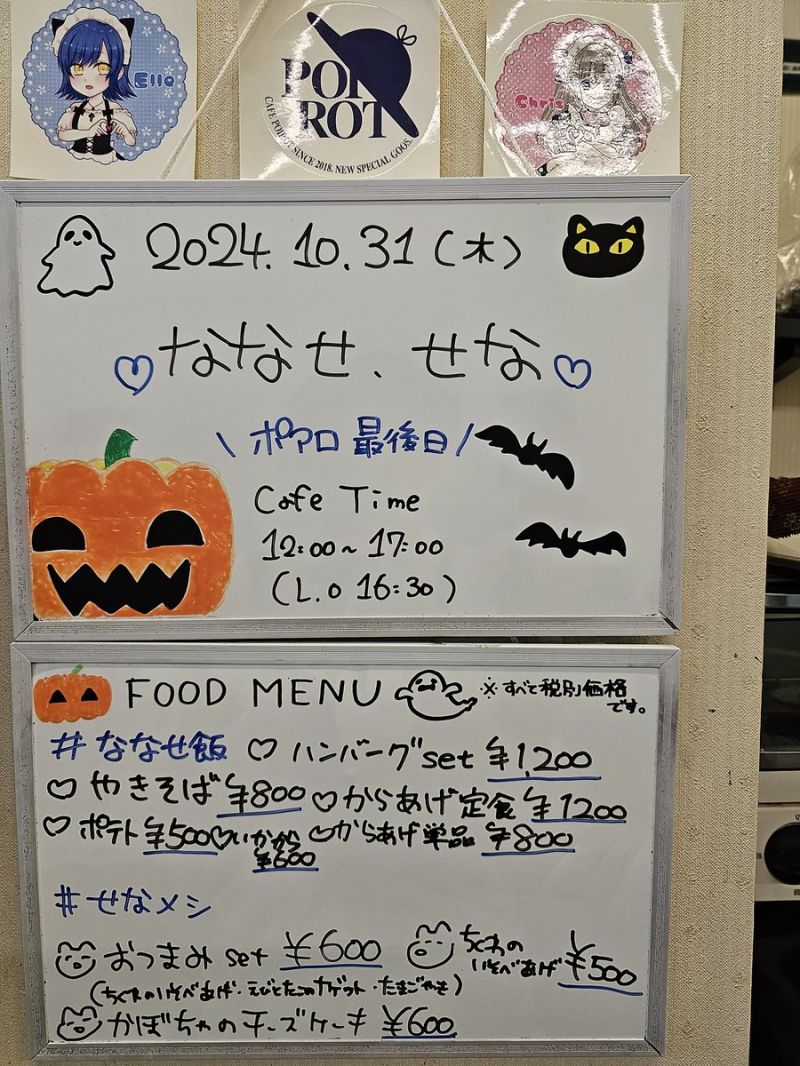 Elle
POI ROT
CAFE POIROT SINCE 2018. NEW SPECIAL GOOS.
Chris
2024.10.31(木)
♡ななせ、せな♡
\ポアロ 最後日/
Cafe Time
12:00~17:00
(L.O 16:30)
FOOD MENU
※すべて税別価格
です。
#ななせ飯 ♡ハンバーグset ¥1,200
♡やきそば ¥800 ♡からあげ定食 ¥1200
♡ポテト ¥500 ♡いかから ♡からあげ単品 ¥800
¥600
#せなメシ
おつまみset ¥600
ちくわの
いそべあげ ¥500
(ちくわのいそべあげ・えびとたこのナゲット・たまごやき)
かぼちゃのチーズケーキ ¥600